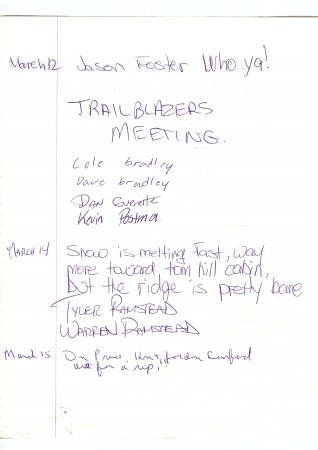 March 12 Jason Foster Who ya!
TRAILBLAZERS
MEETING.
Cole bradley
Dave bradley
DAN
Kevin Postma
MARCH 14 Snow is melting fast, way
more toward tom hill cabin,
but the ridge is pretty bare
TYLER RAMSTEAD
WARREN RAMSTEAD
March 15
out for a rip,!